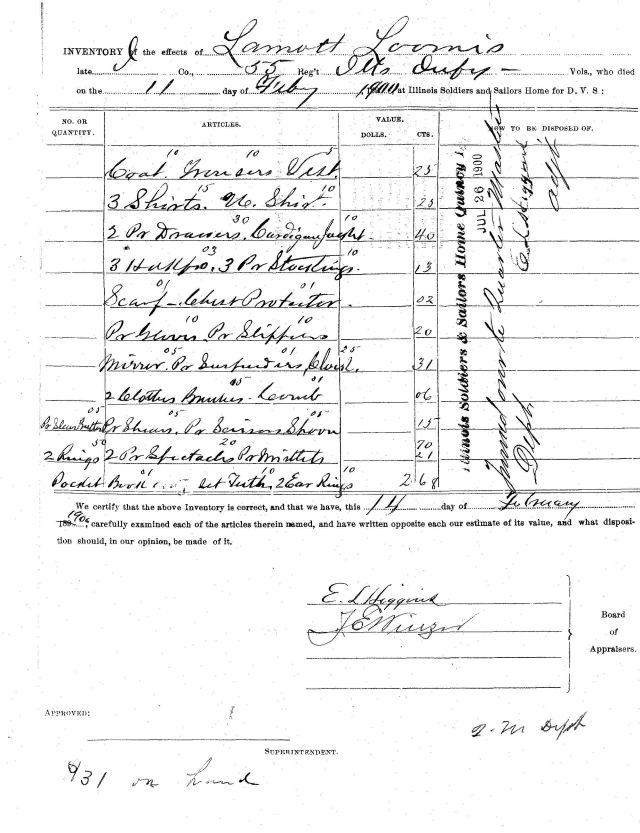 INVENTORY of the effects of Lamott Loomis
late J Co., 55 Reg't Ills Infy Vols., who died
on the 11 day of Feby 1900 at Illinois Soldiers and Sailors Home for D. V. S.:
NO. OR QUANTITY. ARTICLES. VALUE. DOLLS. CTS. HOW TO BE DISPOSED OF.
10 10 5
Coat Trousers Vest 25
15 10
3 Shirts. U. Shirt. 25
30 10
2 Pr Drawers, Cardigan Jacket 40
03 10
3 Hdkfs, 3 Pr Stockings. 13
01 01
Scarf - Chest Protector 02
10 10
Pr Gloves Pr Slippers 20
05 01 25
Mirror. Pr Suspenders, 31
05 01
2 Clothes Brushes Comb 06
05 05 05
Pr Sleeve Buttons Pr Shears. Pr Scissors Spoon 15
50 20 70
2 Rings 2 Pr Spectacles Pr Wristlets 21
01 10 10
Pocket Book Set Teeth, 2 Ear Rings 2 68
Illinois Soldiers & Sailors Home Quincy I
JUL 26 1900
Turned over to Quarter Master
Dept.
E L Higgins
adjt
We certify that the above Inventory is correct, and that we have, this 14 day of February
1900, carefully examined each of the articles therein named, and have written opposite each our estimate of its value, and what disposi-
tion should, in our opinion, be made of it.
E. L Higgins
Board
of
Appraisers.
APPROVED:
Q. M Dept
SUPERINTENDENT.
931 on hand